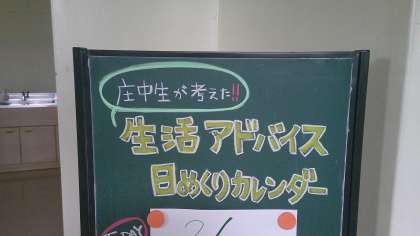 庄中生が考えた!!
生活アドバイス
日めくりカレンダー